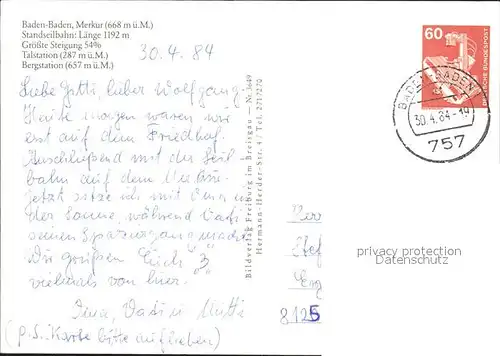 Baden-Baden, Merkur (668 m ü.M.)
Standseilbahn: Länge 1192 m
Größte Steigung 54%
Talstation (287 m ü.M.)
Bergstation (657 m ü.M.)
30.4.84
Liebe Gotti, lieber Wolfgang.
Heute morgen waren wir
erst auf dem Friedhof.
Anschließend mit der Seil-
bahn auf dem Merkur.
Jetzt sitze ich mit Oma in
der Sonne, während Vati
seinen Spaziergang macht.
Wir grüßen Euch 3
vielmals von hier.
Oma, Vati u. Mutti
(P.S. Karte bitte aufheben)
Bildverlag Freiburg im Breisgau - Nr. 3649
Hermann-Herder-Str. 4 / Tel. 2717270
60
DEUTSCHE BUNDESPOST
BADEN-BADEN 1
30.4.84-19
757
privacy protection
Datenschutz
8125